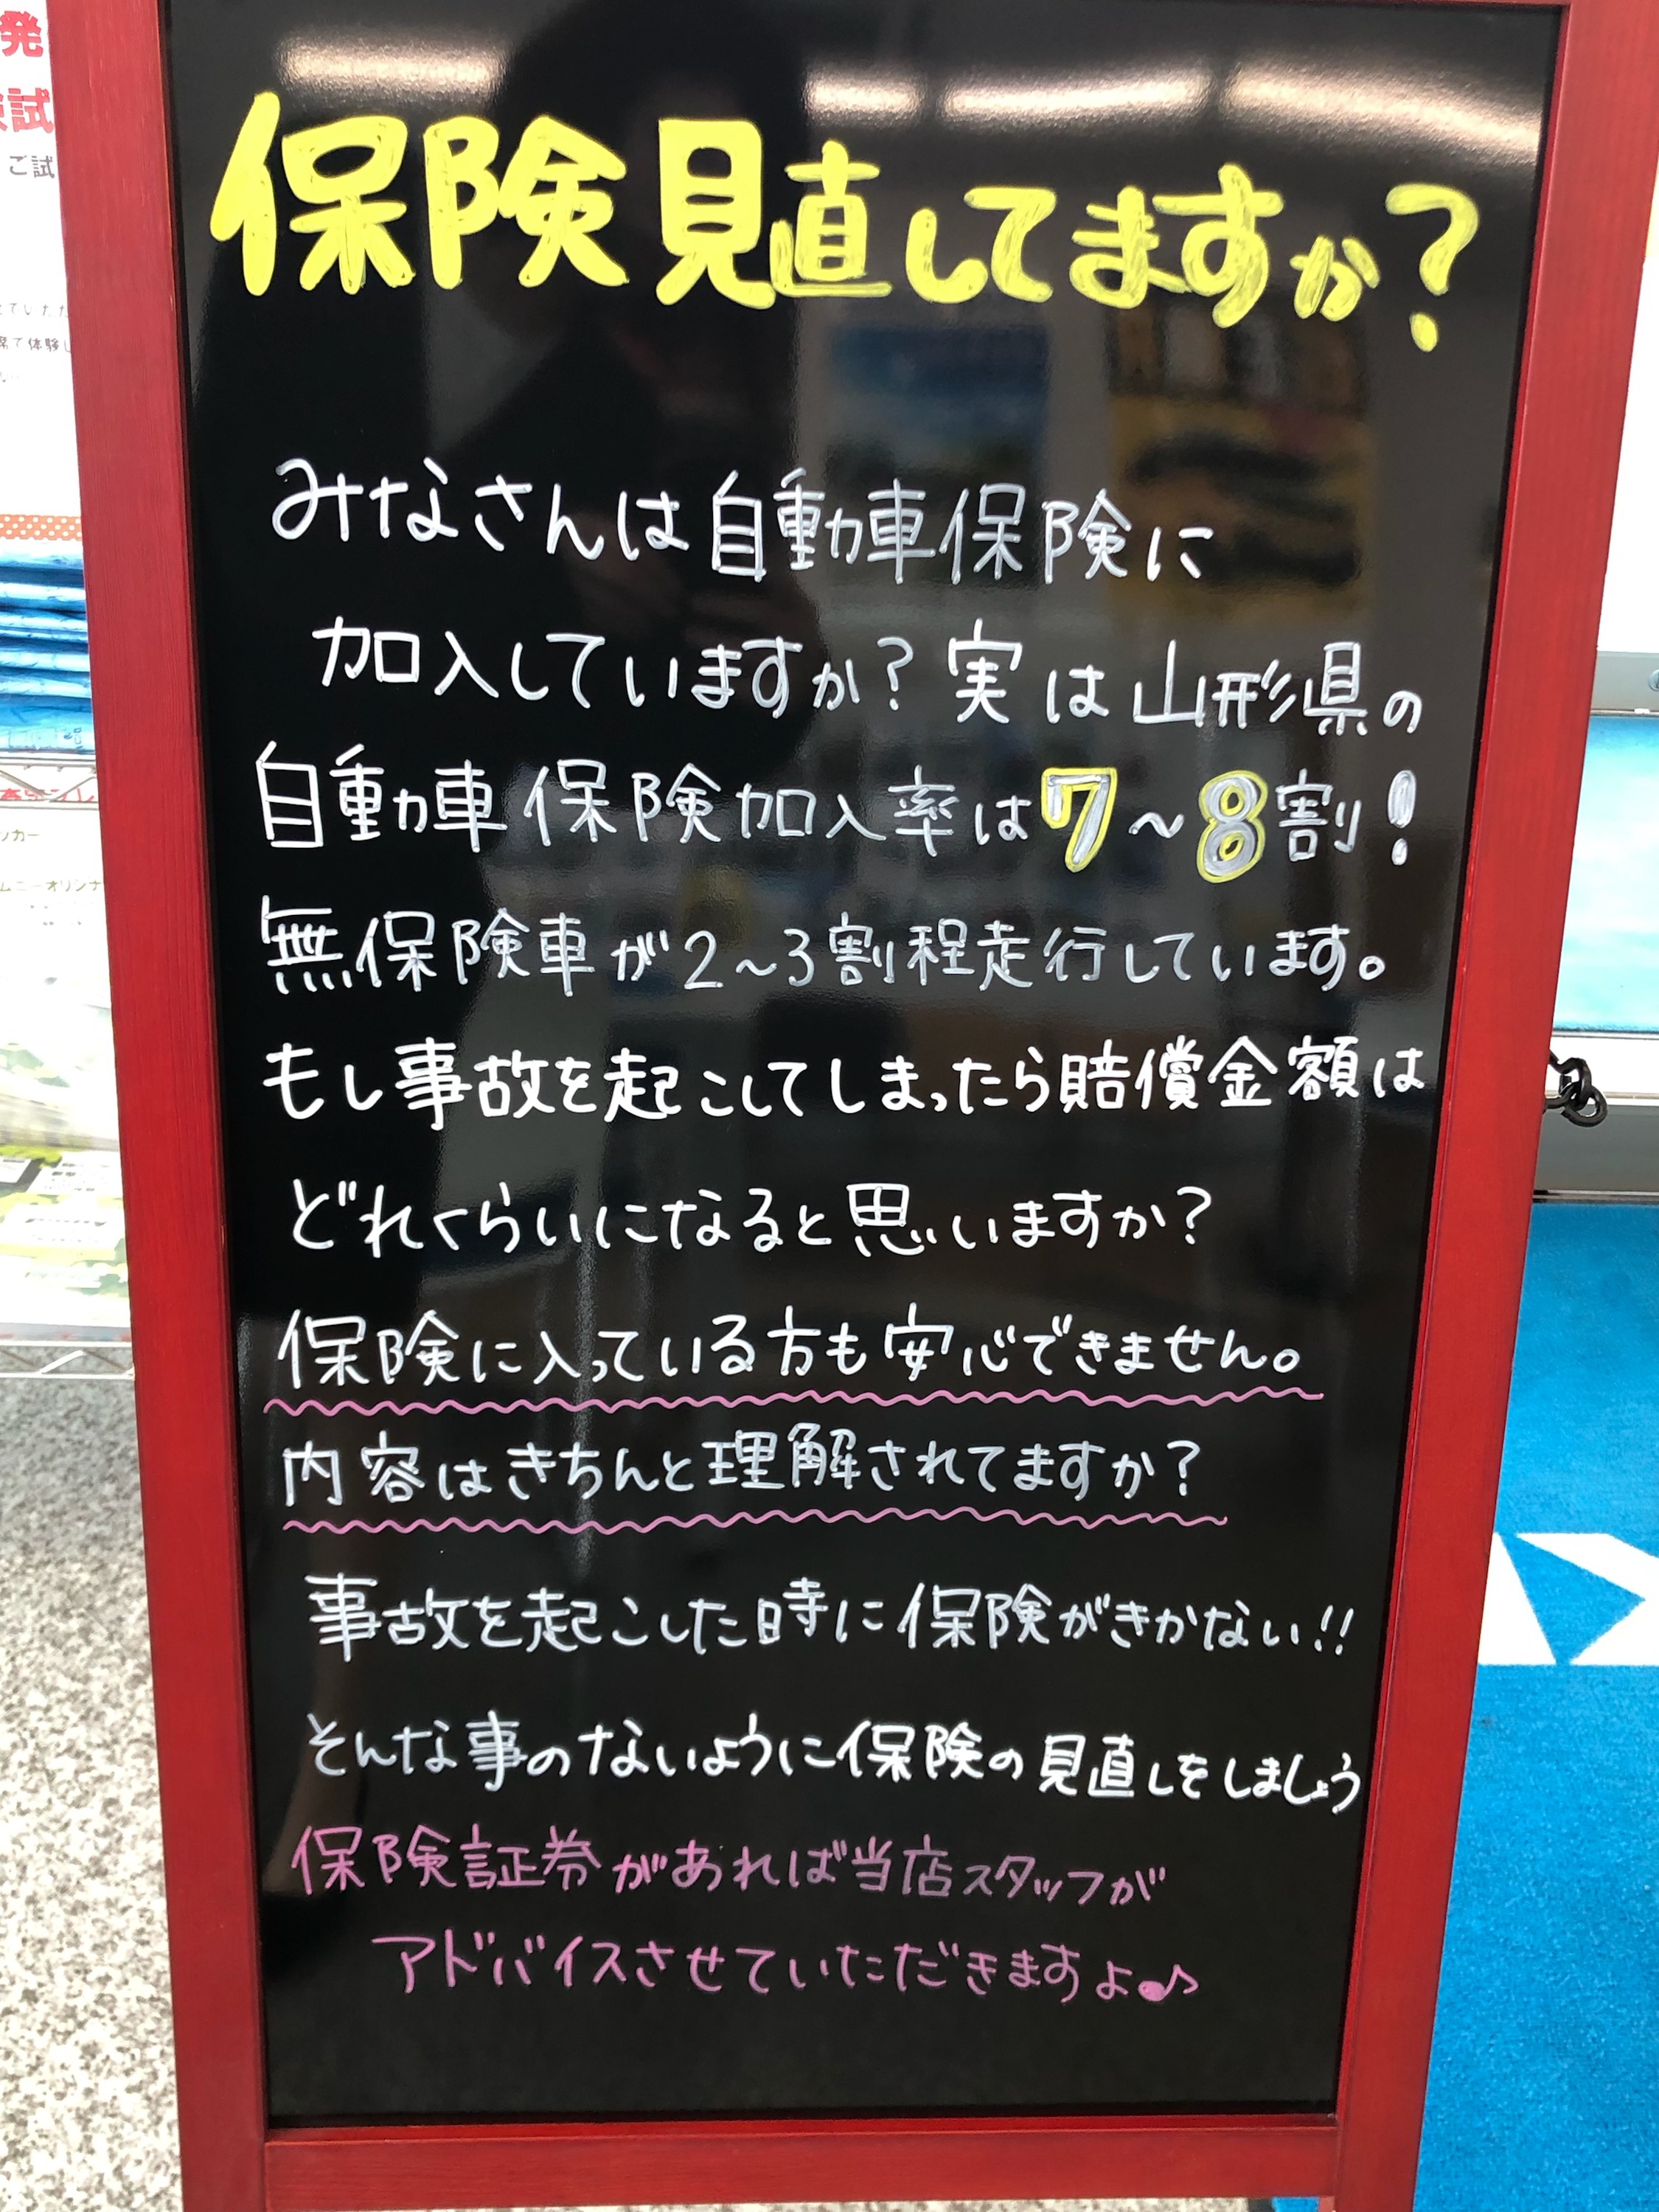 保険見直してますか？
みなさんは自動車保険に
加入していますか？実は山形県の
自動車保険加入率は7～8割！
無保険車が2～3割程走行しています。
もし事故を起こしてしまったら賠償金額は
どれくらいになると思いますか？
保険に入っている方も安心できません。
内容はきちんと理解されてますか？
事故を起こした時に保険がきかない!!
そんな事のないように保険の見直しをしましょう
保険証券があれば当店スタッフが
アドバイスさせていただきますよ♪
発
試
ご試